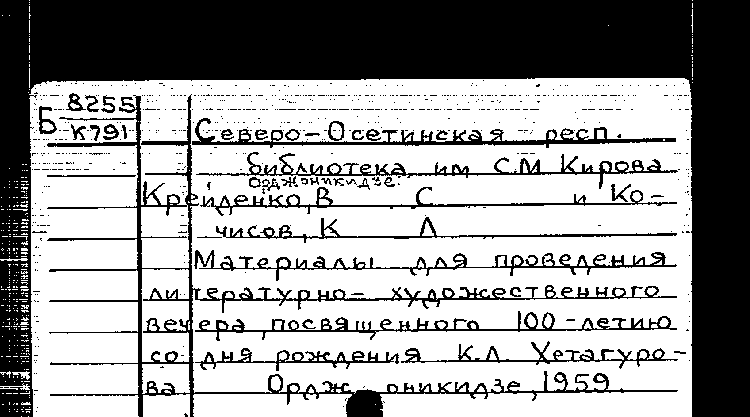 Б 8255
К791
Северо-Осетинская респ.
библиотека им С.М Кирова
Орджоникидзе.
Крейденко, В С и Ко-
чисов, К Л
Материалы для проведения
литературно-художественного
вечера, посвященного 100-летию
со дня рождения К.Л. Хетагуро-
ва Орджоникидзе, 1959.